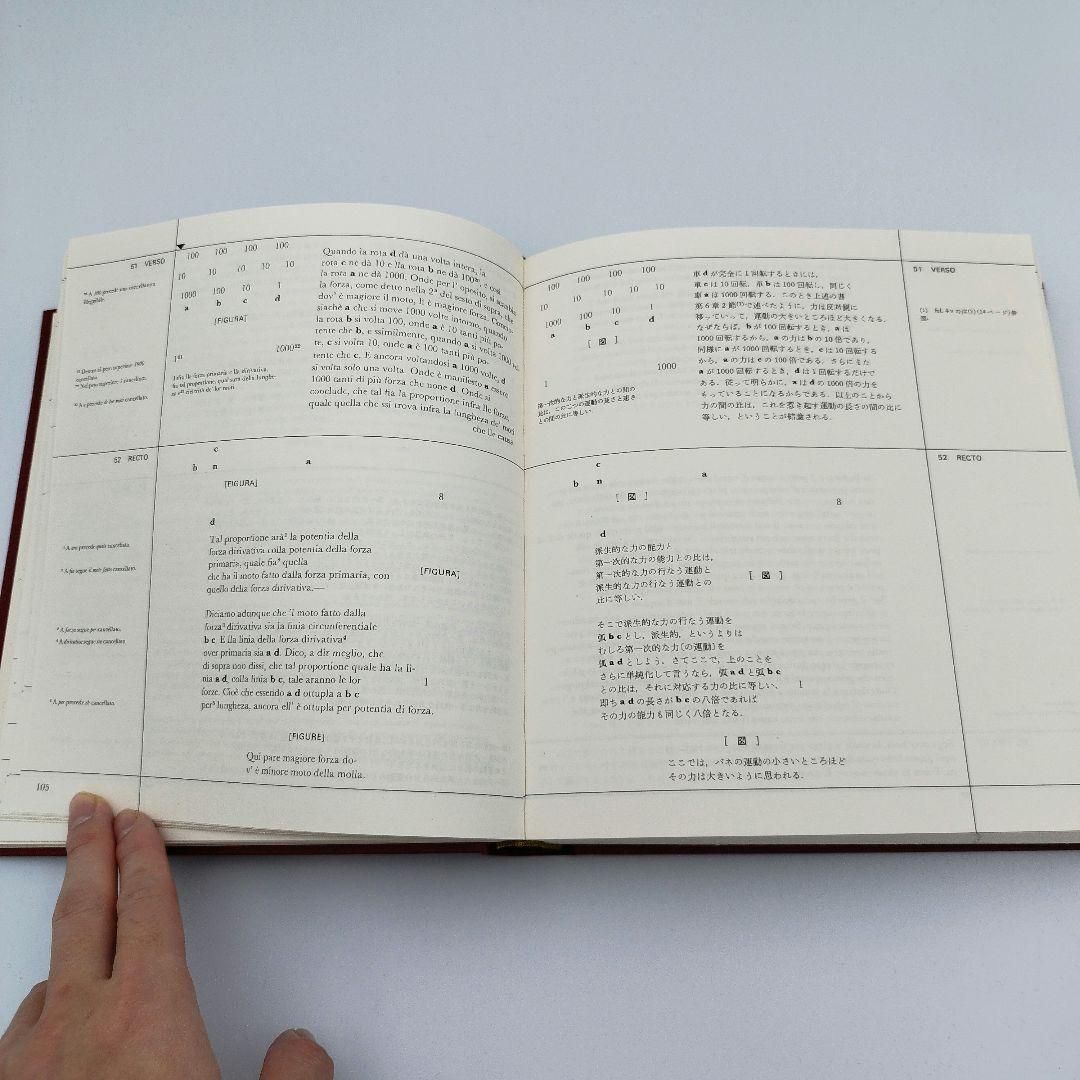 51 VERSO
100 100 100 100
10 10 10 10 10
1000 100 10 1
a b c d
[FIGURA]
1000²²
Infra lle forze primaria e lla dirivativa,
Quando la rota d dà una volta intera, la
rota c ne dà 10 e lla rota b ne dà 100, e così
la rota a ne dà 1000. Onde per l'oposito, si
la forza, come detto nella 2ª del sesto di sopra, che
dov'è magiore il moto, lì è magiore forza.
siaché a che si move 1000 volte intorno, quando
la rota b si volta 100, onde a è 10 tanti più po-
tente che b, e ssimilmente, quando a si volta 1000
te, c si volta 10, onde a è 100 tanti più po-
tente che c. E ancora voltandosi a 1000 volte, d
si volta solo una volta. Onde è manifesto a essere
1000 tanti di più forza che none d. Onde si
conclude, che tal fia la proportione infra lle forze,
quale quella che ssi trova infra la lungheza de' moti
che lle causa
52 RECTO
c
b n a
[FIGURA]
8
d
Tal proportione arà² la potentia della
forza dirivativa colla potentia della forza
primaria, quale fia³ quella
che ha il moto fatto dalla forza primaria, con
quello della forza dirivativa.—
[FIGURA]
Diciamo adunque che 'l moto fatto dalla
forza dirivativa sia la linia circunferentiale
b c. E lla linia della forza dirivativa
over primaria sia a d. Dico, a dir meglio, che
di sopra non dissi, che tal proportione quale ha la li-
nia a d, colla linia b c, tale aranno le lor
forze. Cioè che essendo a d ottupla a b c
per lungheza, ancora ell' è ottupla per potentia di forza.
1
[FIGURE]
Qui pare magiore forza do-
v' è minore moto della molla.
105
100 100 100 100
10 10 10 10 10
1000 100 10 1
a b c d
[図]
1 1000
第一次的な力と派生的な力との間の
比は、この二つの運動の長さと速さ
との間の比に等しい.
車 d が完全に1回転するときには,
車 c は10回転, 車 b は100回転し, 同じく
車 a は1000回転する. このとき上述の書
第6章2節⁽¹⁾で述べたように, 力は反対側に
移っていって, 運動の大きいところほど大きくなる.
なぜならば, b が100回転するとき, a は
1000回転するから, a の力は b の10倍であり,
同様に a が1000回転するとき, c は10回転する
から, a の力は c の100倍である. さらにまた
a が1000回転するとき, d は1回転するだけで
ある. 従って明らかに, a は d の1000倍の力を
もっていることになるからである. 以上のことから
力の間の比は, これを惹き起す運動の長さの間の比に
等しい, ということが結論される.
51 VERSO
c
b n a
[図]
8
d
派生的な力の能力と
第一次的な力の能力との比は,
第一次的な力の行なう運動と
派生的な力の行なう運動との
比に等しい.
[図]
そこで派生的な力の行なう運動を
弧 b c とし, 派生的, というよりは
むしろ第一次的な力〔の運動〕を
弧 a d としよう. さてここで, 上のことを
さらに単純化して言うなら, 弧 a d と弧 b c
との比は, それに対応する力の比に等しい、
即ち a d の長さが b c の八倍であれば
その力の能力も同じく八倍となる.
1
[図]
ここでは, バネの運動の小さいところほど
その力は大きいように思われる.
52 RECTO